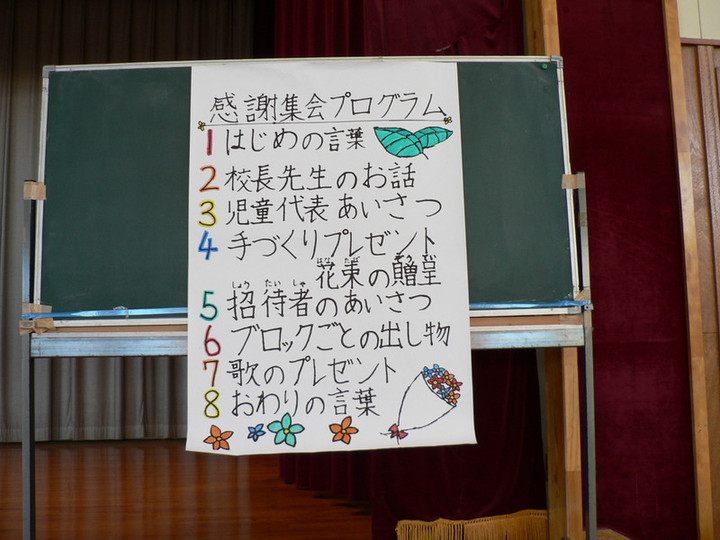 感謝集会プログラム
1 はじめの言葉
2 校長先生のお話
3 児童代表あいさつ
4 手づくりプレゼント
はなたば ぞうてい
花束の贈呈
しょうたいしゃ
5 招待者のあいさつ
6 ブロックごとの出し物
7 歌のプレゼント
8 おわりの言葉